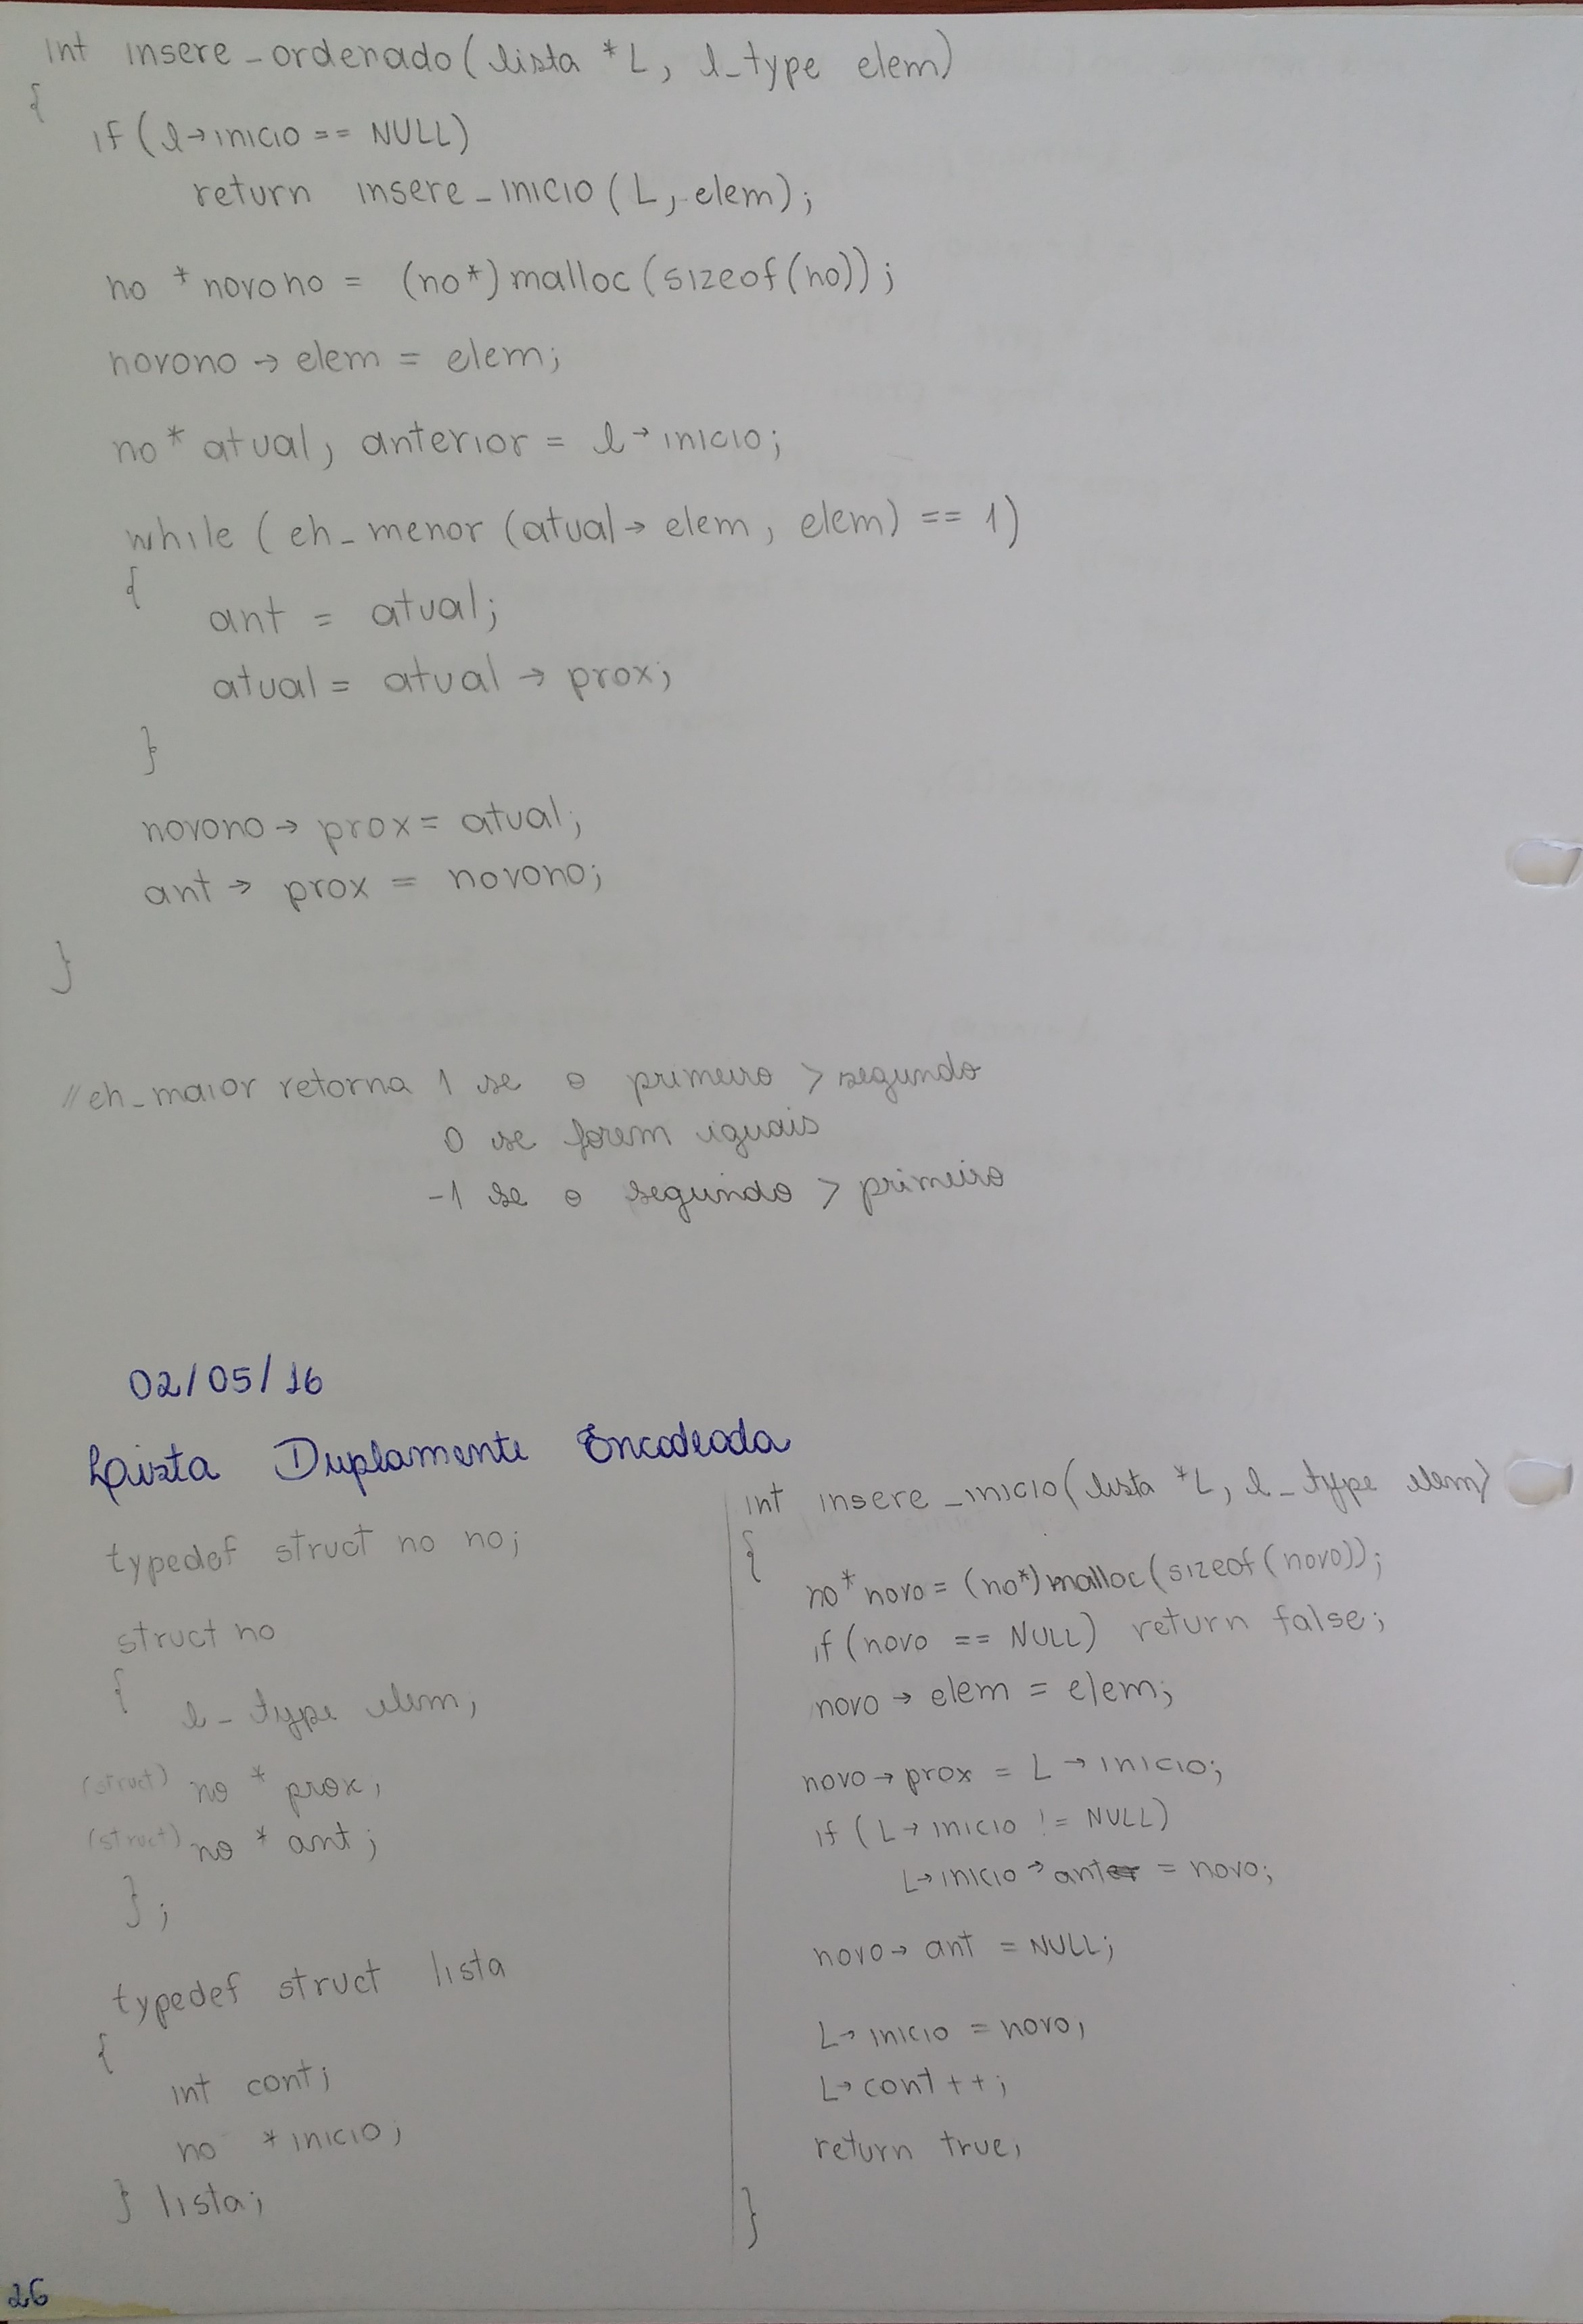 int insere_ordenado(lista *L, l_type elem)
{
if(l→inicio == NULL)
return insere_inicio(L, elem);
no *novono = (no*)malloc(sizeof(no));
novono → elem = elem;
no* atual, anterior = l→inicio;
while (eh_menor (atual→ elem, elem) == 1)
{
ant = atual;
atual = atual → prox;
}
novono → prox = atual;
ant → prox = novono;
}
//eh_maior retorna 1 se o primeiro > segundo
0 se forem iguais
-1 se o segundo > primeiro
02/05/16
Lista Duplamente Encadeada
typedef struct no no;
struct no
{
l_type elem;
(struct) no * prox;
(struct) no * ant;
};
typedef struct lista
{
int cont;
no *inicio;
} lista;
int insere_inicio(lista *L, l_type elem)
{
no* novo = (no*)malloc(sizeof(novo));
if(novo == NULL) return false;
novo → elem = elem;
novo → prox = L → inicio;
if (L→ inicio != NULL)
L→inicio→ant = novo;
novo→ ant = NULL;
L→ inicio = novo;
L→cont++;
return true;
}
26